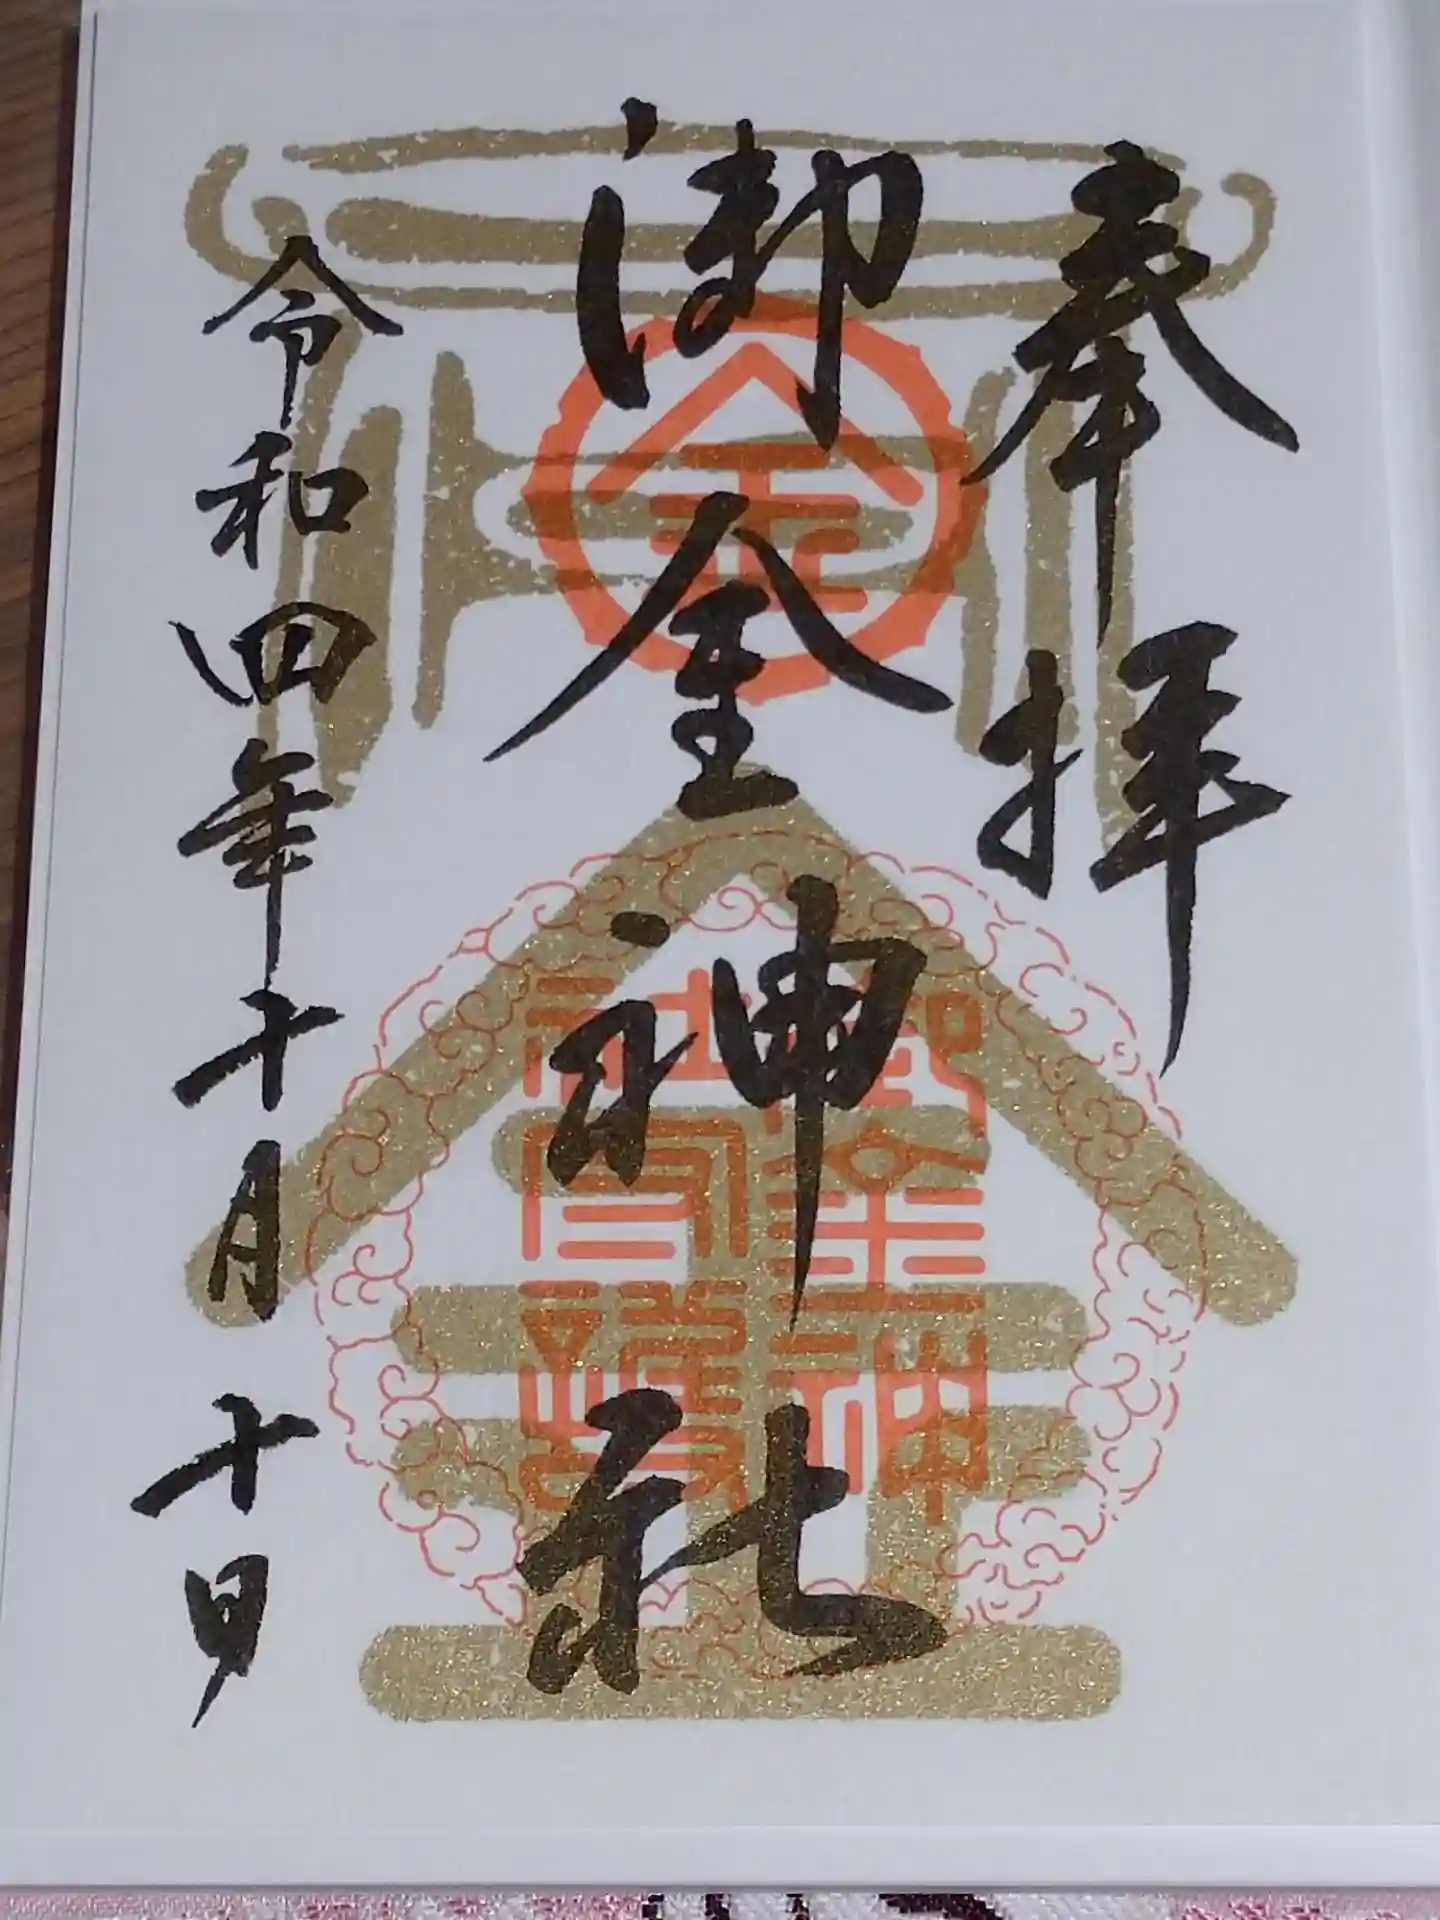 奉拝
御金神社
令和四年十月十日
金
御金神
社